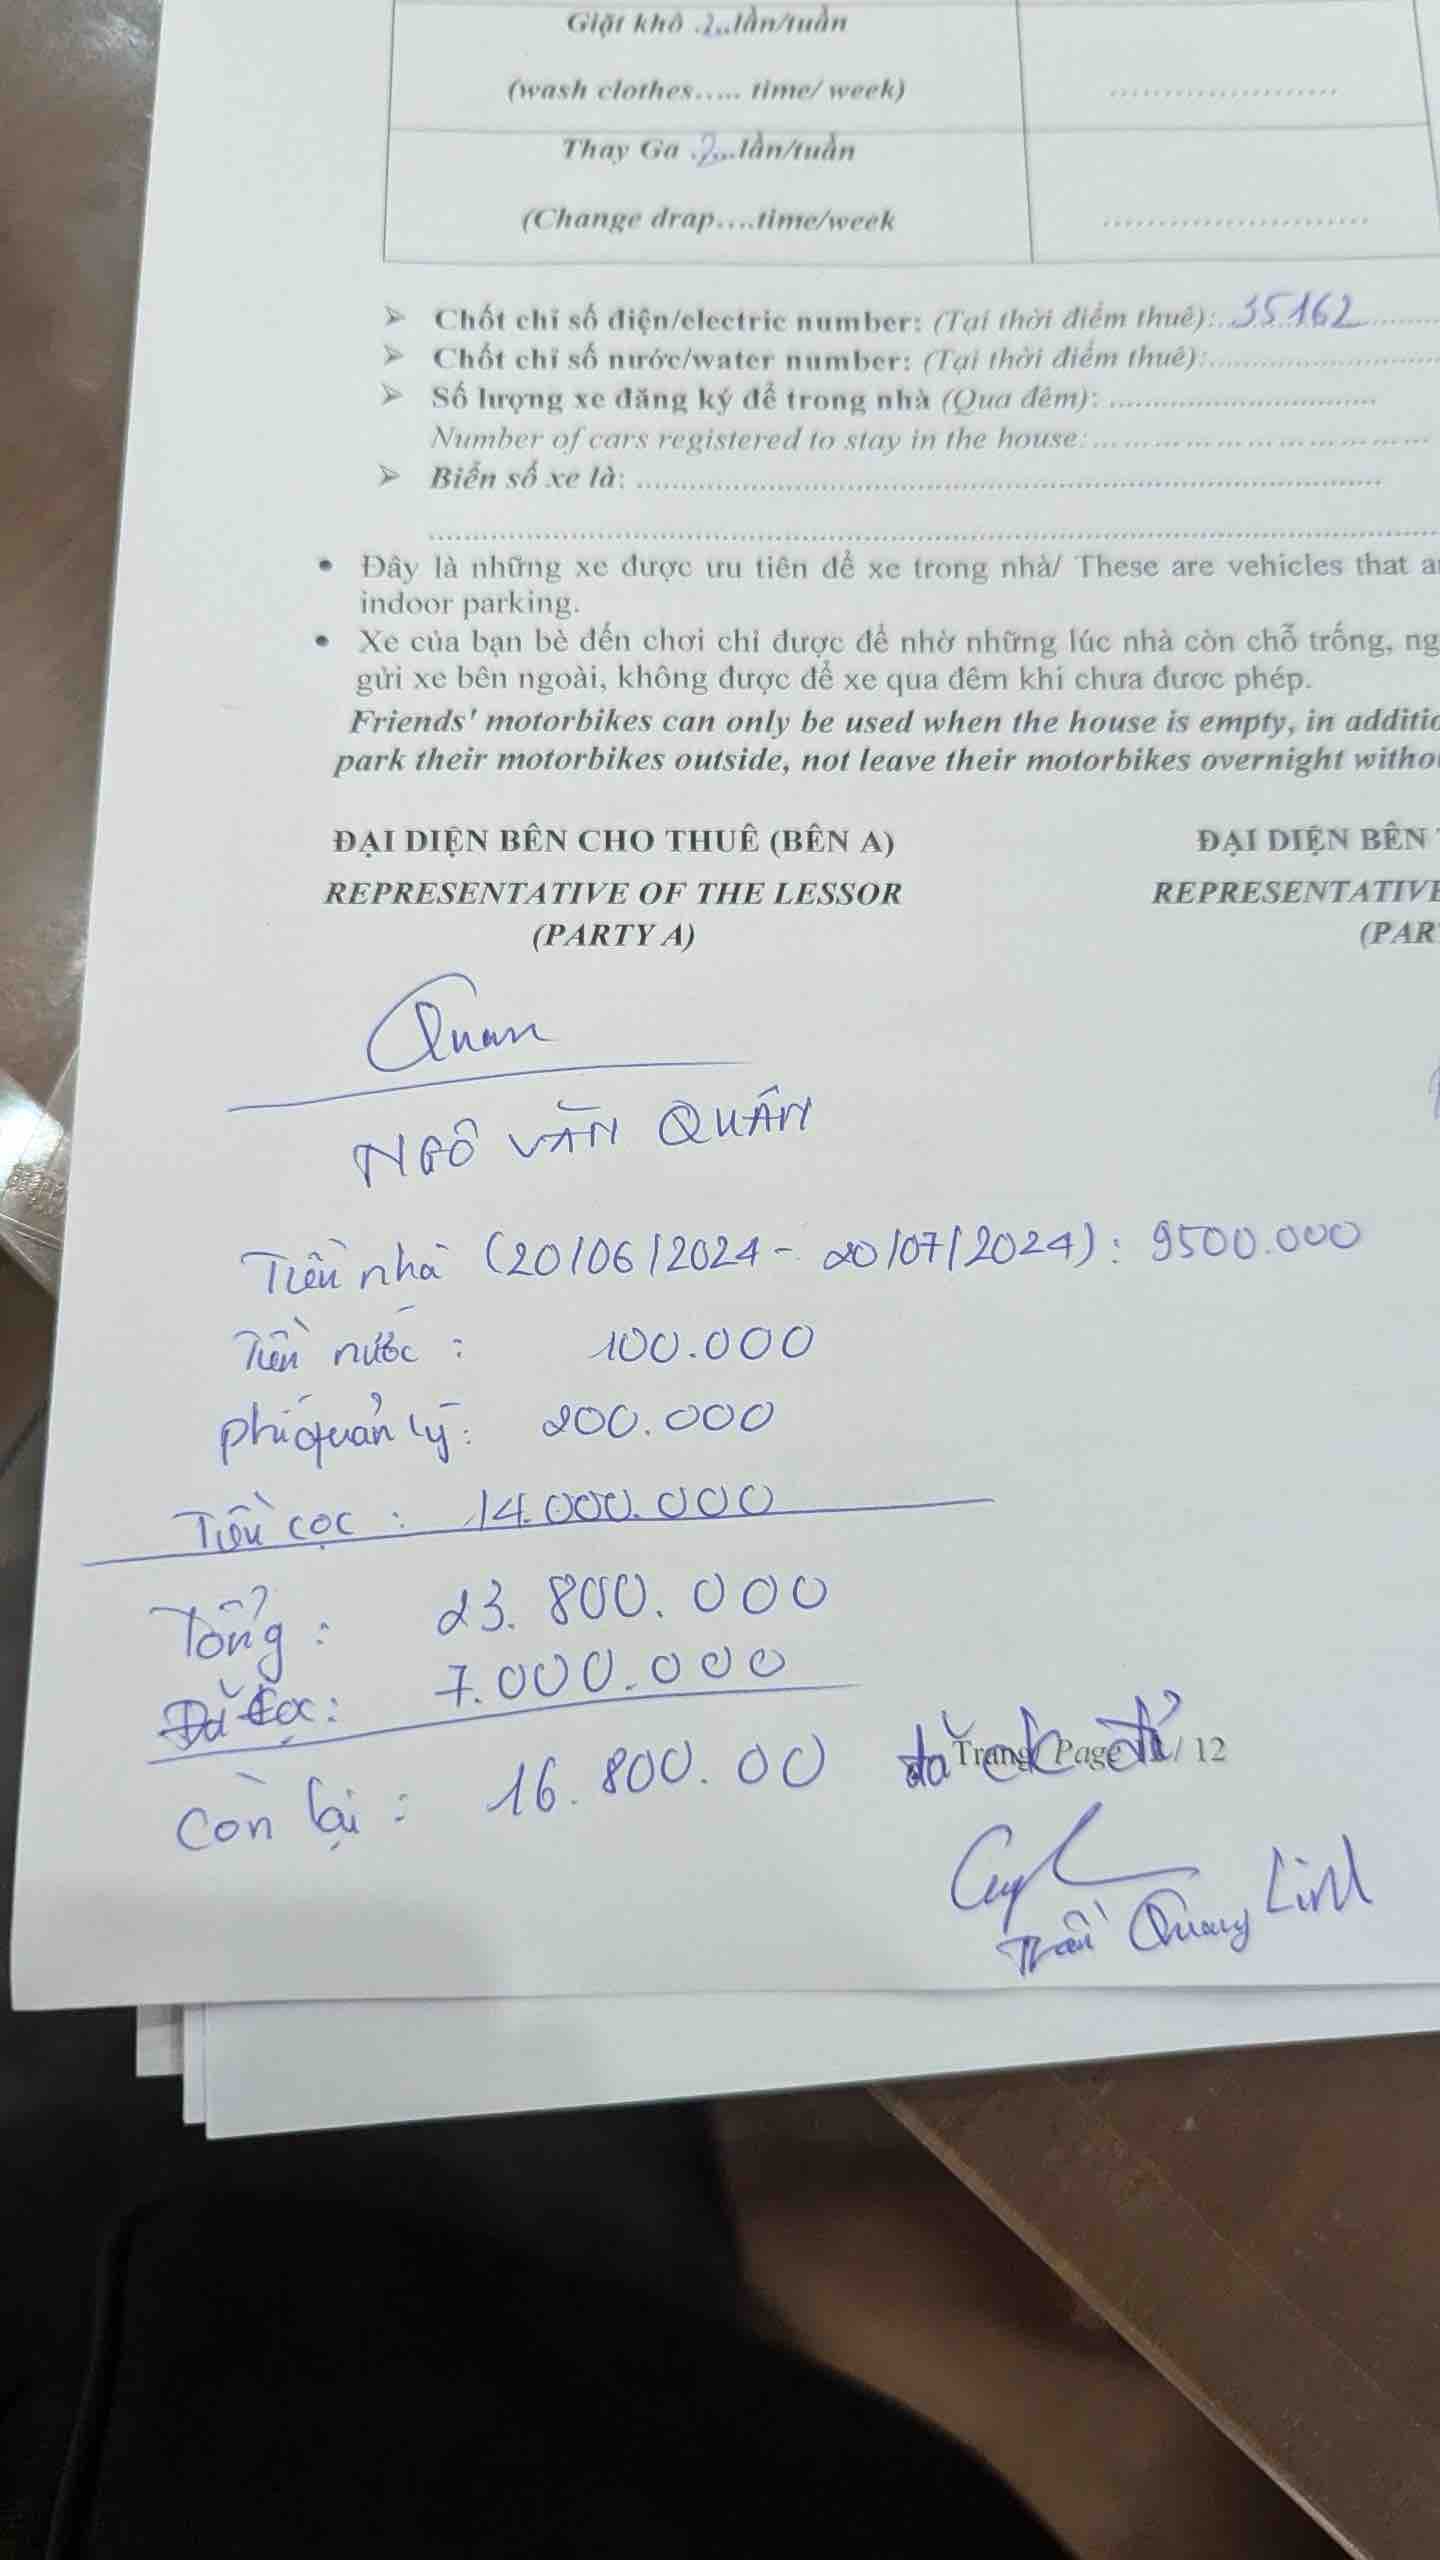 Giặt khô .2...lần/tuần
(wash clothes..... time/ week)
.......................
Thay Ga .2...lần/tuần
(Change drap....time/week
...........................
➢ Chốt chỉ số điện/electric number: (Tại thời điểm thuê):..35162..........
➢ Chốt chỉ số nước/water number: (Tại thời điểm thuê):..........................
➢ Số lượng xe đăng ký để trong nhà (Qua đêm): ................................
Number of cars registered to stay in the house:.......................................
➢ Biển số xe là: .........................................................................................
...................................................................................................................
• Đây là những xe được ưu tiên để xe trong nhà/ These are vehicles that
indoor parking.
• Xe của bạn bè đến chơi chỉ được để nhờ những lúc nhà còn chỗ trống,
gửi xe bên ngoài, không được để xe qua đêm khi chưa đươc phép.
Friends' motorbikes can only be used when the house is empty, in additio
park their motorbikes outside, not leave their motorbikes overnight witho
ĐẠI DIỆN BÊN CHO THUÊ (BÊN A)
REPRESENTATIVE OF THE LESSOR
(PARTY A)
ĐẠI DIỆN BÊN
REPRESENTATIVE
(PAR
Quan
NGÔ VĂN QUÂN
Tiền nhà (20/06/2024 - 20/07/2024) : 9500.000
Tiền nước : 100.000
phí quản lý: 200.000
Tiền cọc : 14.000.000
Tổng : 23.800.000
Đã cọc: 7.000.000
Còn lại : 16.800.00 đã ck đủ
Trang/ Page / 12
Trần Quang Linh